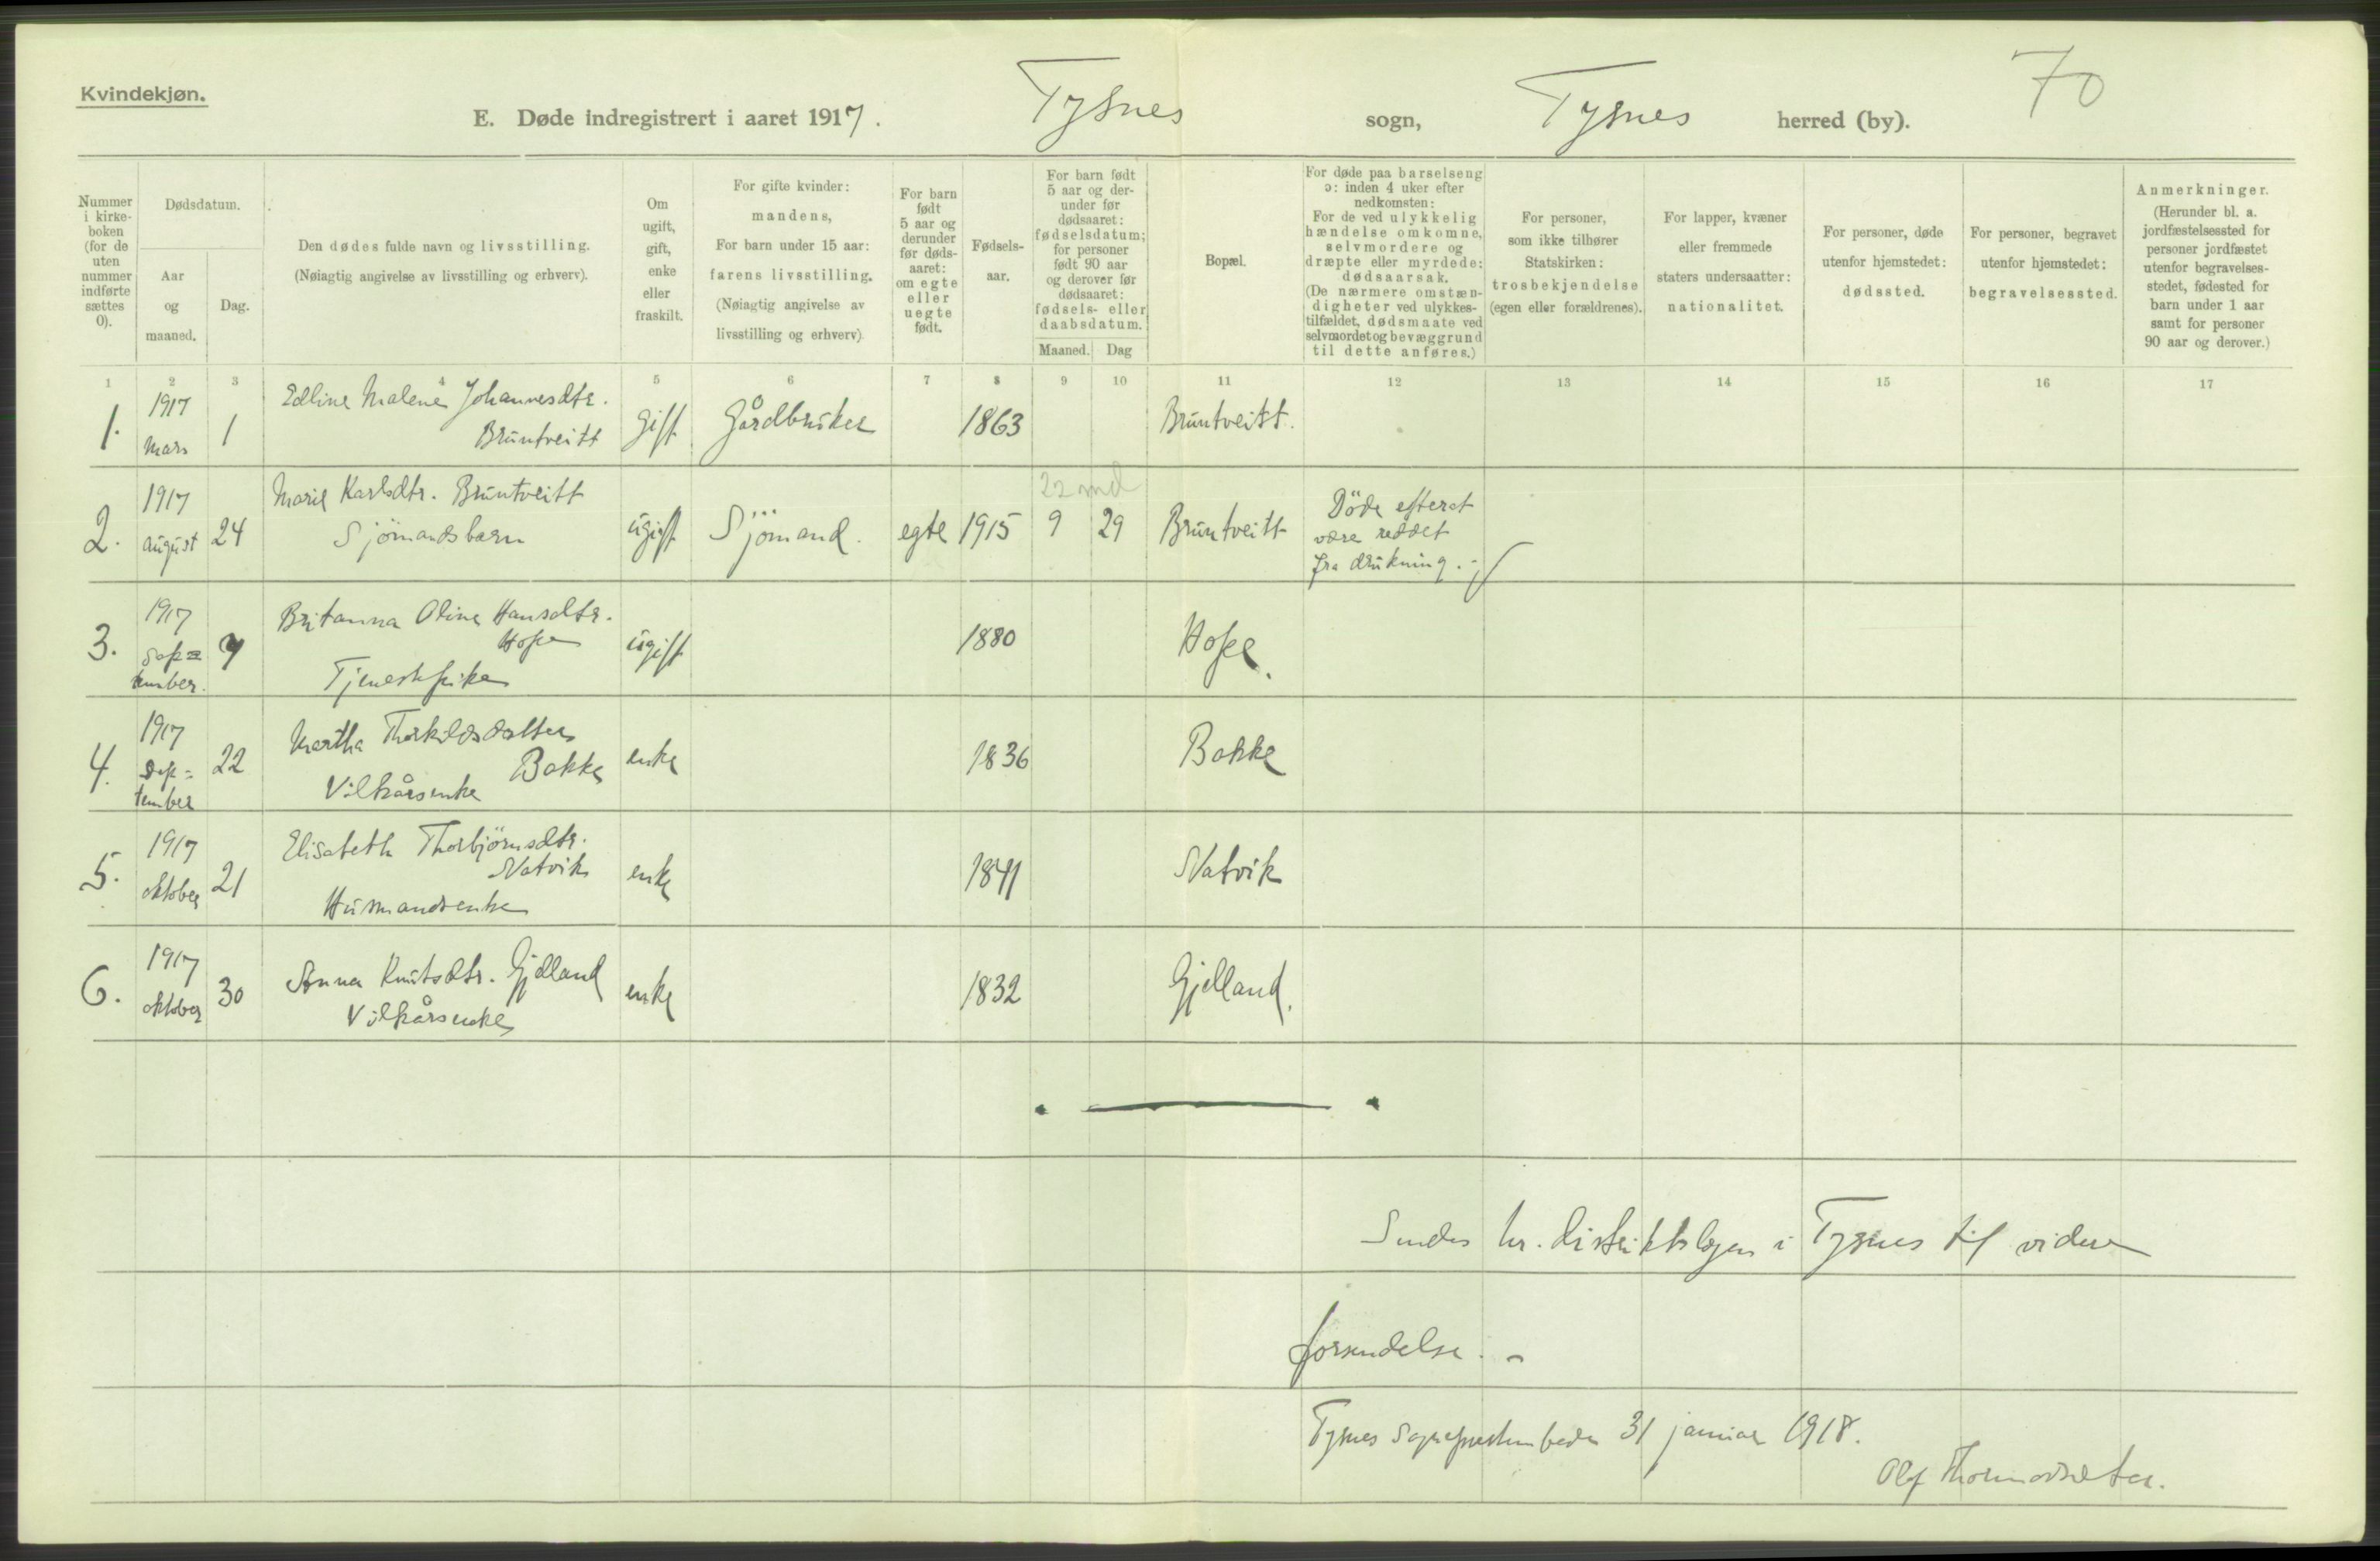 Kvindekjøn.
70
E. Døde indregistrert i aaret 1917. Tysnes sogn, Tysnes herred (by).
Nummer
i kirke-
boken
(for de
uten
nummer
indførte
sættes
0).
Dødsdatum.
Aar
og
maaned.
Dag.
Den dødes fulde navn og livsstilling.
(Nøiagtig angivelse av livsstilling og erhverv).
Om
ugift,
gift,
enke
eller
fraskilt.
For gifte kvinder:
mandens,
For barn under 15 aar:
farens livsstilling.
(Nøiagtig angivelse av
livsstilling og erhverv)
For barn
født
5 aar og
derunder
før døds-
aaret:
om egte
eller
uegte
født.
Fødsels-
aar.
For barn født
5 aar og der-
under før
dødsaaret:
fødselsdatum;
for personer
født 90 aar
og derover før
dødsaaret:
fødsels- eller
daabsdatum.
Maaned.
Dag
Bopæl.
For døde paa barselseng
ɔ: inden 4 uker efter
nedkomsten:
For de ved ulykkelig
hændelse omkomne,
selvmordere og
dræpte eller myrdede:
dødsaarsak.
(De nærmere omstæn-
digheter ved ulykkes-
tilfældet, dødsmaate ved
selvmordet og bevæggrund
til dette anføres.)
For personer,
som ikke tilhører
Statskirken:
trosbekjendelse
(egen eller forældrenes).
For lapper, kvæner
eller fremmede
staters undersaatter:
nationalitet.
For personer, døde
utenfor hjemstedet:
dødssted.
For personer, begravet
utenfor hjemstedet:
begravelsessted.
Anmerkninger.
(Herunder bl. a.
jordfæstelsessted for
personer jordfæstet
utenfor begravelses-
stedet, fødested for
barn under 1 aar
samt for personer
90 aar og derover.)
1 2 3 4 5 6 7 8 9 10 11 12 13 14 15 16 17
1. 1917
Mars 1 Edline Malene Johannesdtr.
Bruntveitt gift Gårdbruker 1863 Bruntveitt.
2. 1917
august 24 Marie Karlsdtr. Bruntveitt
Sjömandsbarn ugift Sjömand. egte 1915 9 29 Bruntveitt
22 md
Döde efterat
være reddet
fra drukning.
3. 1917
Sep=
tember. 7 Britanna Oline Hansdtr.
Hope
Tjenestepike ugift 1880 Hope.
4. 1917
Sep=
tember 22 Martha Thorkildsdatter
Bakke
Vilkårsenke enke 1836 Bakke
5. 1917
oktober 21 Elisabeth Thorbjörnsdtr.
Natvik
Husmandsenke enke 1841 Natvik
6. 1917
oktober 30 Anna Knutsdtr. Gjelland
Vilkårsenke enke 1832 Gjelland.
Sendes hr. distriktslægen i Tysnes til videre
forsendelse. -
Tysnes Sogneprestembede 31 januar 1918.
Olf Thormodsæter.